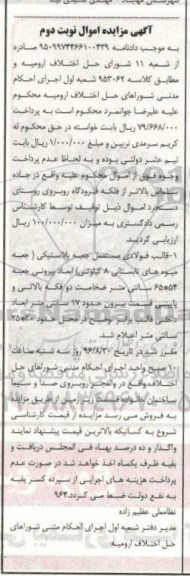 آگهی مزایده اموال نوبت دوم
به موجب دادنامه ۹۵۰۹۹۷۴۴۶۶۱۰۰۴۳۹ صادره
از شعبه ۱۱ شورای حل اختلاف ارومیه و
مطابق کلاسه ۹۵۳۰۶۲ شعبه اول اجرای احکام
مدنی شوراهای حل اختلاف ارومیه محکوم
علیه علیرضا جوانمرد محکوم است به پرداخت
۷۹/۶۶۸/۰۰۰ ریال بابت خواسته در حق محکوم له
کریم سرمدی تربین و مبلغ ۱/۰۰۰/۰۰۰ ریال بابت
نیم عشر دولتی بوده و به لحاظ عدم پرداخت
وجوه فوق از اموال محکوم علیه واقع در جاده
سلماس بالاتر از فلکه فرودگاه روبروی روستای
اموال ذیل توقیف توسط کارشناس
رسمی دادگستری به میزان ۱۰۰/۰۰۰/۰۰۰ ریال
ارزیابی گردید.
۱-قالب فولادی مستعمل جعبه پلاستیکی (جعبه
میوه های تابستانی ۸ کیلوئی) ابعاد بیرونی جعبه
سانتی متر ضخامت دو فکه بالائی و
پایینی قسمت بیرون حدود ۱۷ سانتی متر ابعاد
داخلی قالب
سانتی متر اعلام شد.
مقرر شد در تاریخ ۹۶/۸/۳۰ روز سه شنبه ساعت
صبح واحد اجرای احکام مدنی شوراهای حل
اختلاف واقع در والفجر روبروی صدا و سیما
ساختمان خانواده طبقه زیرزمین از طریق مزایده
به فروش می رسد مزایده از قیمت کارشناسی
شروع به کسانیکه بالاترین قیمت پیشنهاد نمایند
واگذار و ده درصد بهاء فی المجلس دریافت و
بقیه ظرف یکماه اخذ خواهد شد در صورت عدم
پرداخت هزینه های اجرایی از سپرده کسر بقیه
به نفع دولت ضبط می گردد.۹۶۳
نظامعلی عظیم زاده
مدیر دفتر شعبه اول اجرای احکام مدنی شوراهای
حل اختلاف ارومیه